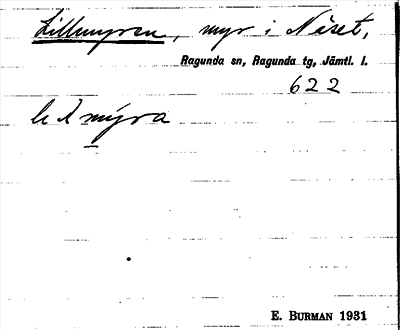 Lillmyren, myr i Näset,
Ragunda sn, Ragunda tg, Jämtl. l.
622
mýra
E. BURMAN 1931